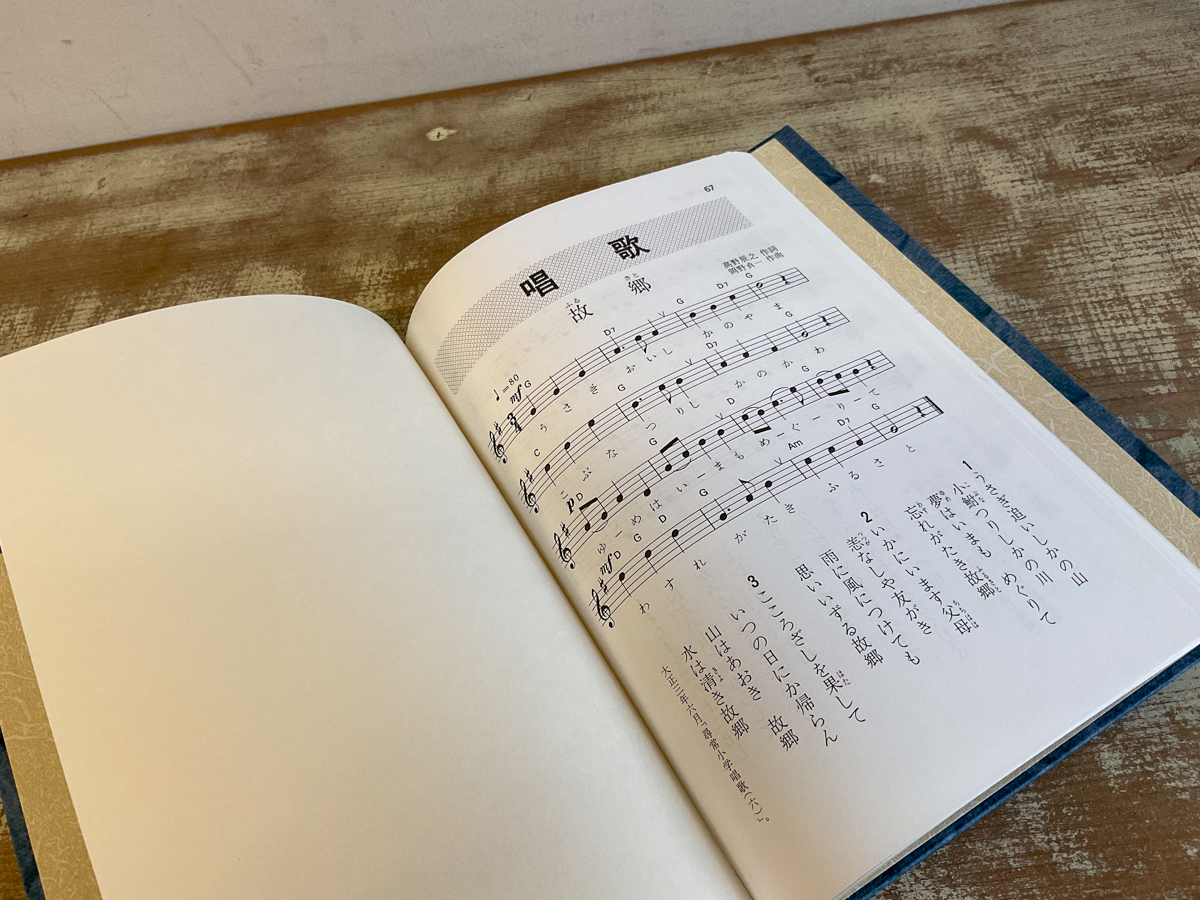 67
唱歌
故郷
ふる さと
高野辰之 作詞
岡野貞一 作曲
♩=80
mf
G D7 G D7 G
うさぎおいしかのやま
C G D7 G
こぶなつりしかのかわ
p
D G D G
ゆーめはいーまもめーぐーりーて
mf
D G D G Am D7 G
わすれがたきふるさと
1
うさぎ追いしかの山
小鮒つりしかの川
夢はいまも めぐりて
忘れがたき故郷
2
いかにいます父母
恙なしや友がき
雨に風につけても
思いいずる故郷
3
こころざしを果して
いつの日にか帰らん
山はあおき 故郷
水は清き故郷
大正三年六月「尋常小学唱歌(六)」。